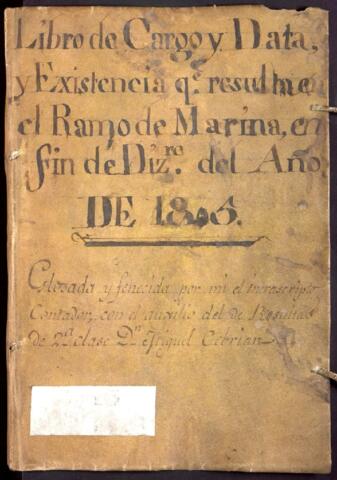 Libro de Cargo y Data,
y Existencia q.e resulta en
el Ramo de Marina, en
fin de Diz.re del Año
DE
Glosada y fenecida por mi el infrascripto
Contador, con el auxilio del de Resultas
de 2.a clase D.n Miguel Cebrian